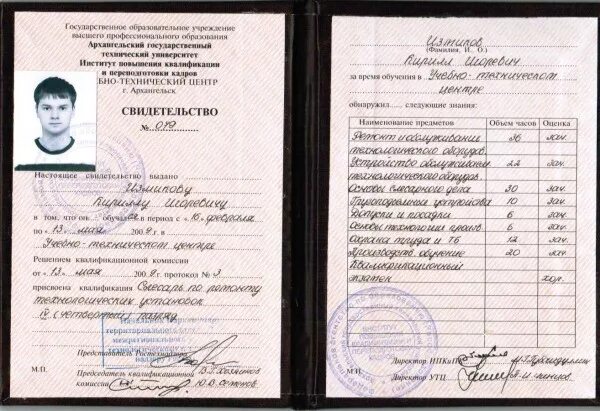 Государственное образовательное учреждение
высшего профессионального образования
Архангельский государственный
технический университет
Институт повышения квалификации
и переподготовки кадров
БНО-ТЕХНИЧЕСКИЙ ЦЕНТР
г. Архангельск
СВИДЕТЕЛЬСТВО
№ 079
Настоящее свидетельство выдано
Измикову
Кириллу Игоревичу
в том, что он обучался в период с «16» февраля
по «13» мая 2009 г. в
Учебно-техническом центре
Решением квалификационной комиссии
от «13» мая 2009 г. протокол № 3
присвоена квалификация Слесарь по ремонту
технологических установок
IV (четвертый) разряд
Представитель Ростехнадзора
Председатель квалификационной
комиссии
М.П.
Измиков
(Фамилия, И., О.)
Кирилл Игоревич
за время обучения в Учебно-техническом
центре
обнаружил следующие знания:
Наименование предметов Объем часов Оценка
Ремонт и обслуживание 36 зач.
технологического оборудов.
Устройство обслуживаем. 22 зач.
технологического оборудов.
Основы слесарного дела 30 зач.
Грузоподъемные устройства 10 зач.
Допуски и посадки 6 зач.
Основы технологии произв. 6 зач.
Охрана труда и ТБ 12 зач.
Производств. обучение 20 зач.
Квалификационный
экзамен хор.
Директор ИПКиПК
Директор УТЦ
М.П.